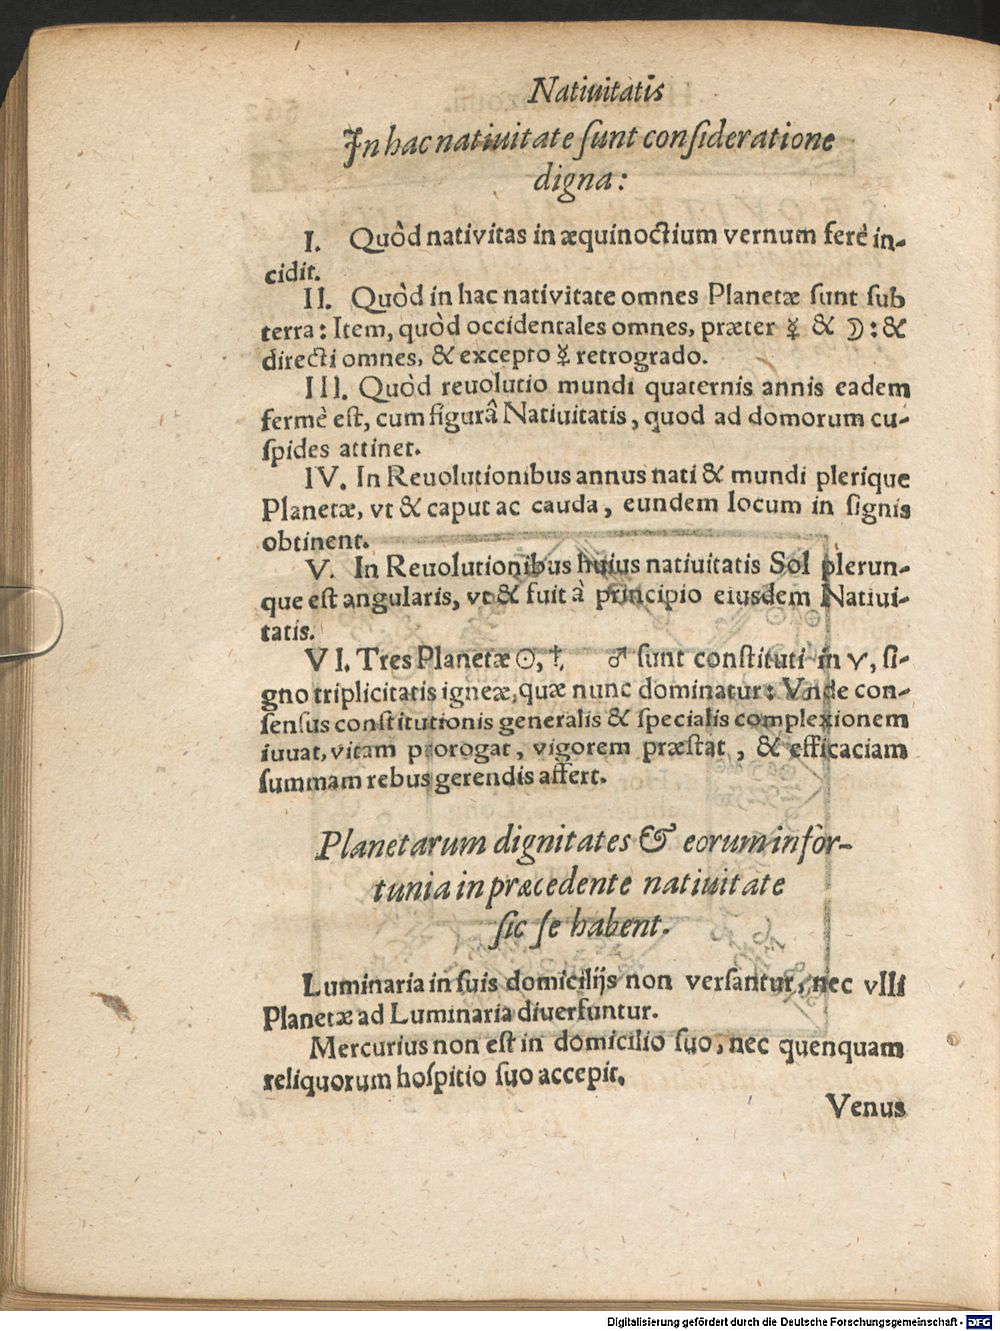 Natiuitatis
In hac natiuitate ſunt conſideratione
digna:
I. Quòd nativitas in æquinoctium vernum ferè in-
cidit.
II. Quòd in hac nativitate omnes Planetæ ſunt ſub
terra: Item, quòd occidentales omnes, præter ☿ & ☽: &
directi omnes, & excepto ☿ retrogrado.
III. Quòd reuolutio mundi quaternis annis eadem
fermè eſt, cum figurâ Natiuitatis, quod ad domorum cu-
ſpides attinet.
IV. In Reuolutionibus annus nati & mundi plerique
Planetæ, vt & caput ac cauda, eundem locum in ſignis
obtinent.
V. In Reuolutionibus huius natiuitatis Sol plerun-
que eſt angularis, vt & fuit à principio eiusdem Natiui-
tatis.
VI. Tres Planetæ ☉, ♄, ♂ ſunt conſtituti in ♈, ſi-
gno triplicitatis igneæ, quæ nunc dominatur: Vnde con-
ſenſus conſtitutionis generalis & ſpecialis complexionem
iuuat, vitam prorogat, vigorem præſtat, & efficaciam
ſummam rebus gerendis affert.
Planetarum dignitates & eorum infor-
tunia in præcedente natiuitate
ſic ſe habent.
Luminaria in ſuis domicilijs non verſantur, nec vlli
Planetæ ad Luminaria diuerſuntur.
Mercurius non eſt in domicilio ſuo, nec quenquam
reliquorum hoſpitio ſuo accepit.
Venus
Digitalisierung gefördert durch die Deutsche Forschungsgemeinschaft - DFG